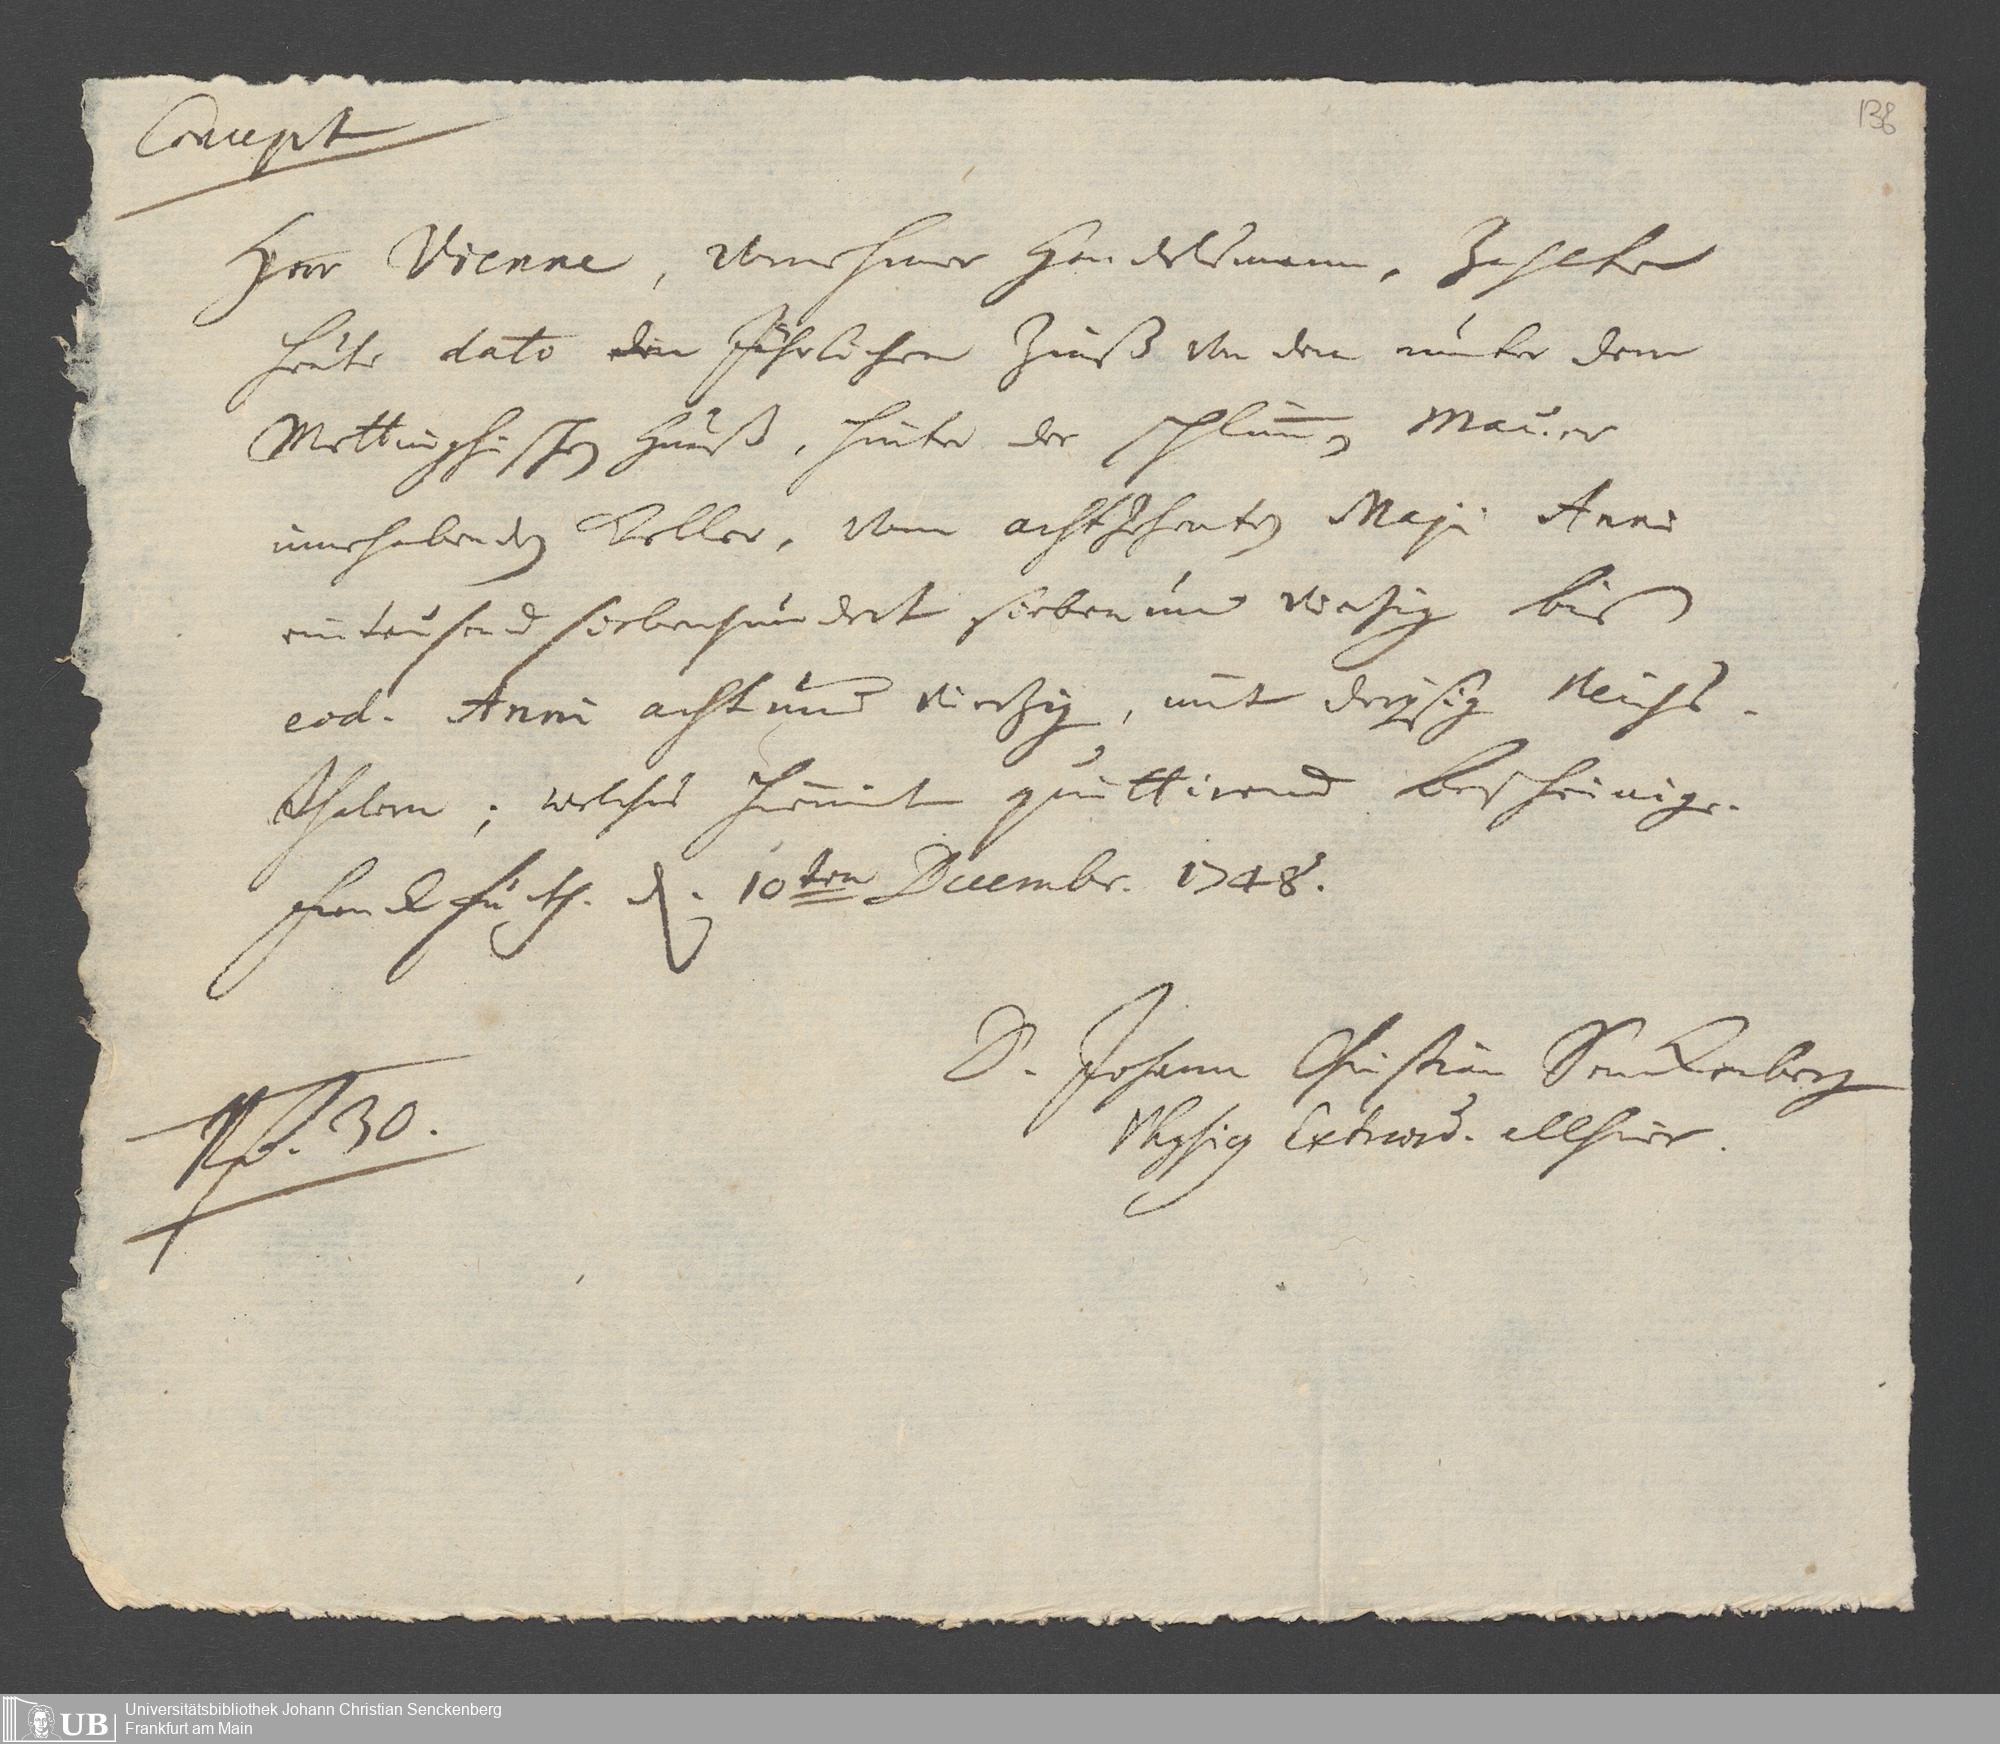 Concept
138
Herr Vienne, vornehmer Handelsmann, zahlte
heute dato den Jährlichen Zinß von dem unter dem
Mettinghischen Hauß, hinter der schlim̅en Mauer
innehabenden Keller, vom achtzehenten Maji Anni
eintausend siebenhundert siebenund vierzig bis
eod. Anni achtund vierzig, mit dreysig Reichs-
thalern; welches hiemit quittirend bescheinige.
Franckfurth. d. 10ten Decembr. 1748.
D. Johann Christian Senckenberg
Physicus Extraord. allhier.
Rth. 30.
UB
Universitätsbibliothek Johann Christian Senckenberg
Frankfurt am Main